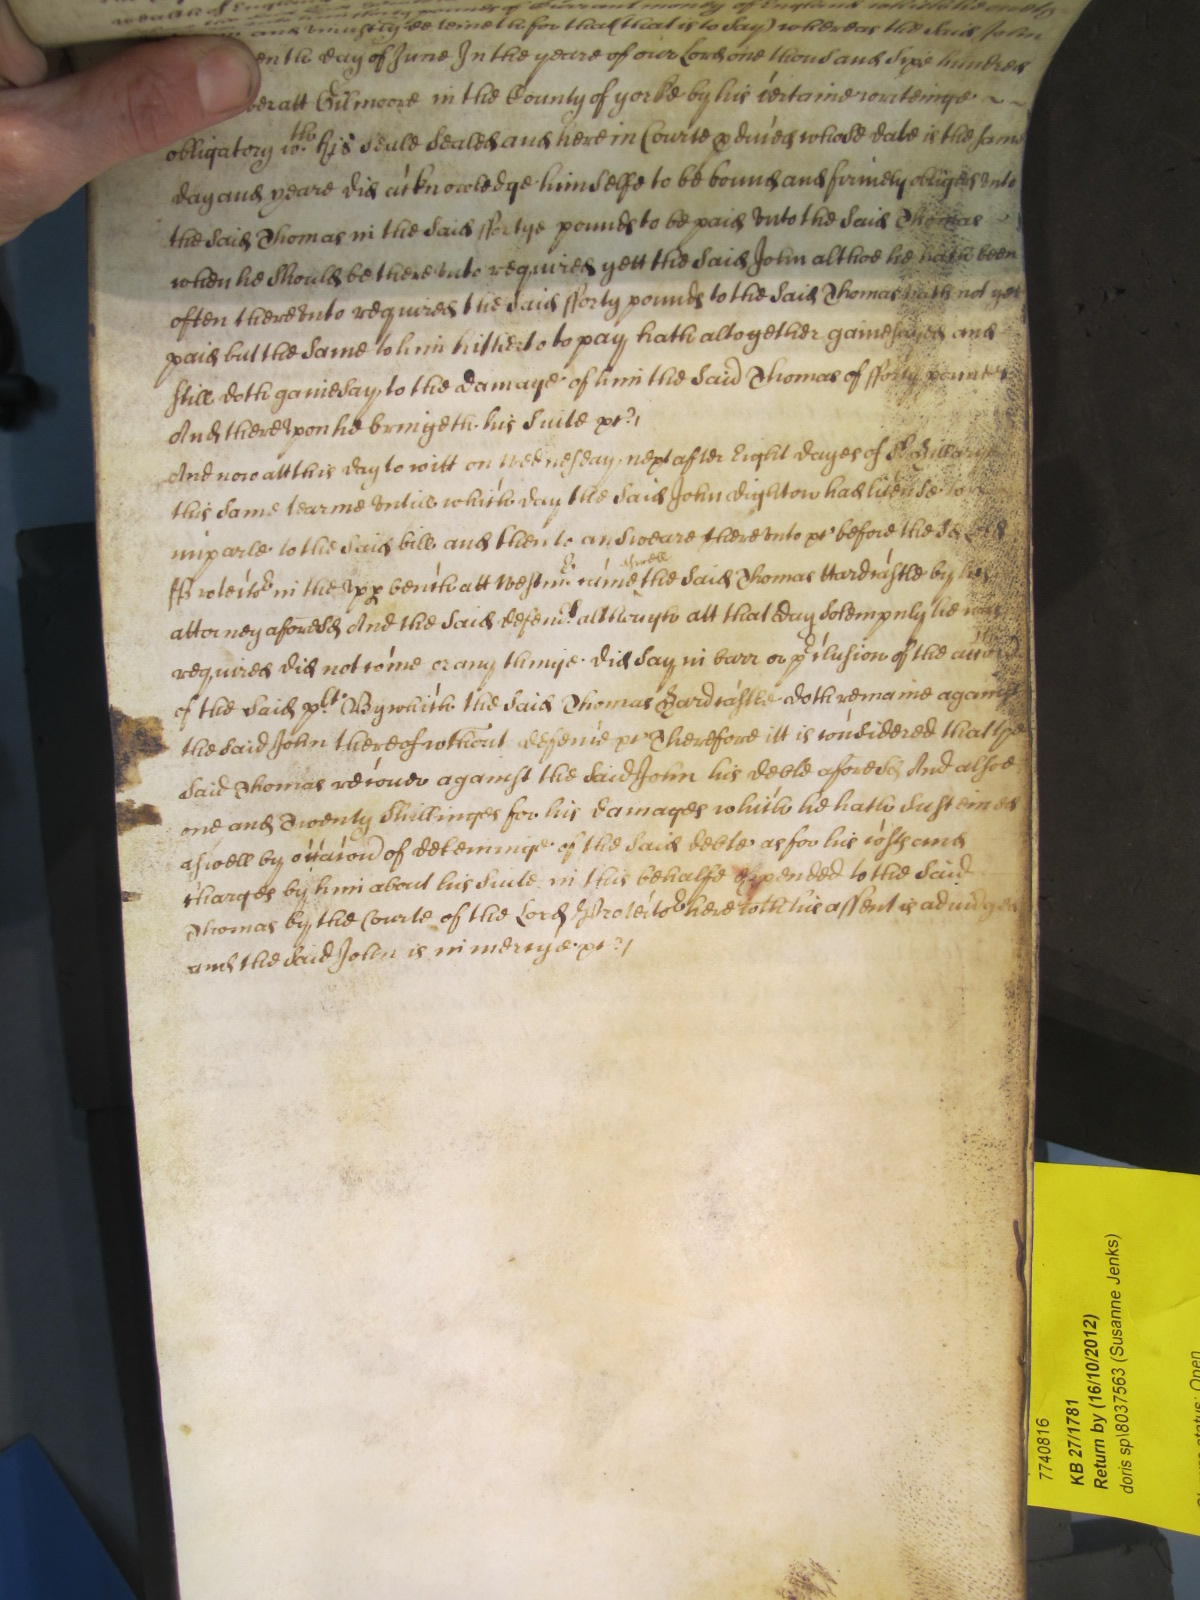 wealth of England
forty pounds of Currant money of England which he oweth
and uniustly deteineth for that (that is to say) whereas the said John
enth day of June In the yeare of our Lord one thousand sixe hundred
att Gilmoore in the County of yorke by his certaine writeinge
obligatory wth his seale sealed and here in Courte pduced whose date is the same
day and yeare did acknowledge himselfe to be bound and firmely obliged vnto
the said Thomas in the said ffortye pounds to be paid vnto the said Thomas
when he should be therevnto required yett the said John althoe he hath been
often therevnto required the said fforty pounds to the said Thomas hath not yet
paid but the same to him hitherto to pay hath altogether gainesayed and
still doth gainesay, to the damage of him the said Thomas of fforty pounds
And therevpon he bringeth his suite &c /
And now att this day to witt on Wednesday next after Eight dayes of St Hillary
this same tearme vntill which day the said John dighton had license to
imparle to the said bill and then to answeare therevnto &c before the said Lord
Protector in the vpp bench att Westmr came aswell the said Thomas Hardcastle by his
attorney aforesd And the said defendt although att that day solempnly he was
required did not come or any thinge did say in barr or pclusion of the accon
of the said plt By which the said Thomas Hardcastle doth remaine against
the said John thereof without defence &c Therefore itt is considered that the
said Thomas recover against the said John his debte aforesd And alsoe
one and Twenty shillinges for his damages which he hath susteined
aswell by occacion of deteininge of the said debte as for his costs and
charges by him about his suite in this behalfe expended to the said
Thomas by the Courte of the Lord Protector here with his assent is adiudged
and the said John is in mercye &c /
7740816
KB 27/1781
Return by (16/10/2012)
doris sp\8037563 (Susanne Jenks)
status: Open